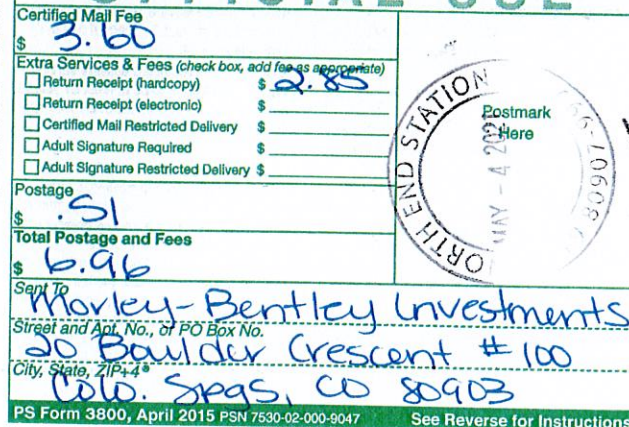 OFFICIAL USE
Certified Mail Fee
$ 3.60
Extra Services & Fees (check box, add fee as appropriate)
Return Receipt (hardcopy) $ 2.85
Return Receipt (electronic) $
Certified Mail Restricted Delivery $
Adult Signature Required $
Adult Signature Restricted Delivery $
Postmark
Here
NORTH END STATION
MAY - 4 202
80907-99
Postage
$ .51
Total Postage and Fees
$ 6.96
Sent To
Morley-Bentley Investments
Street and Apt. No., or PO Box No.
20 Boulder Crescent # 100
City, State, ZIP+4®
Colo. Spgs, CO 80903
PS Form 3800, April 2015 PSN 7530-02-000-9047 See Reverse for Instructions